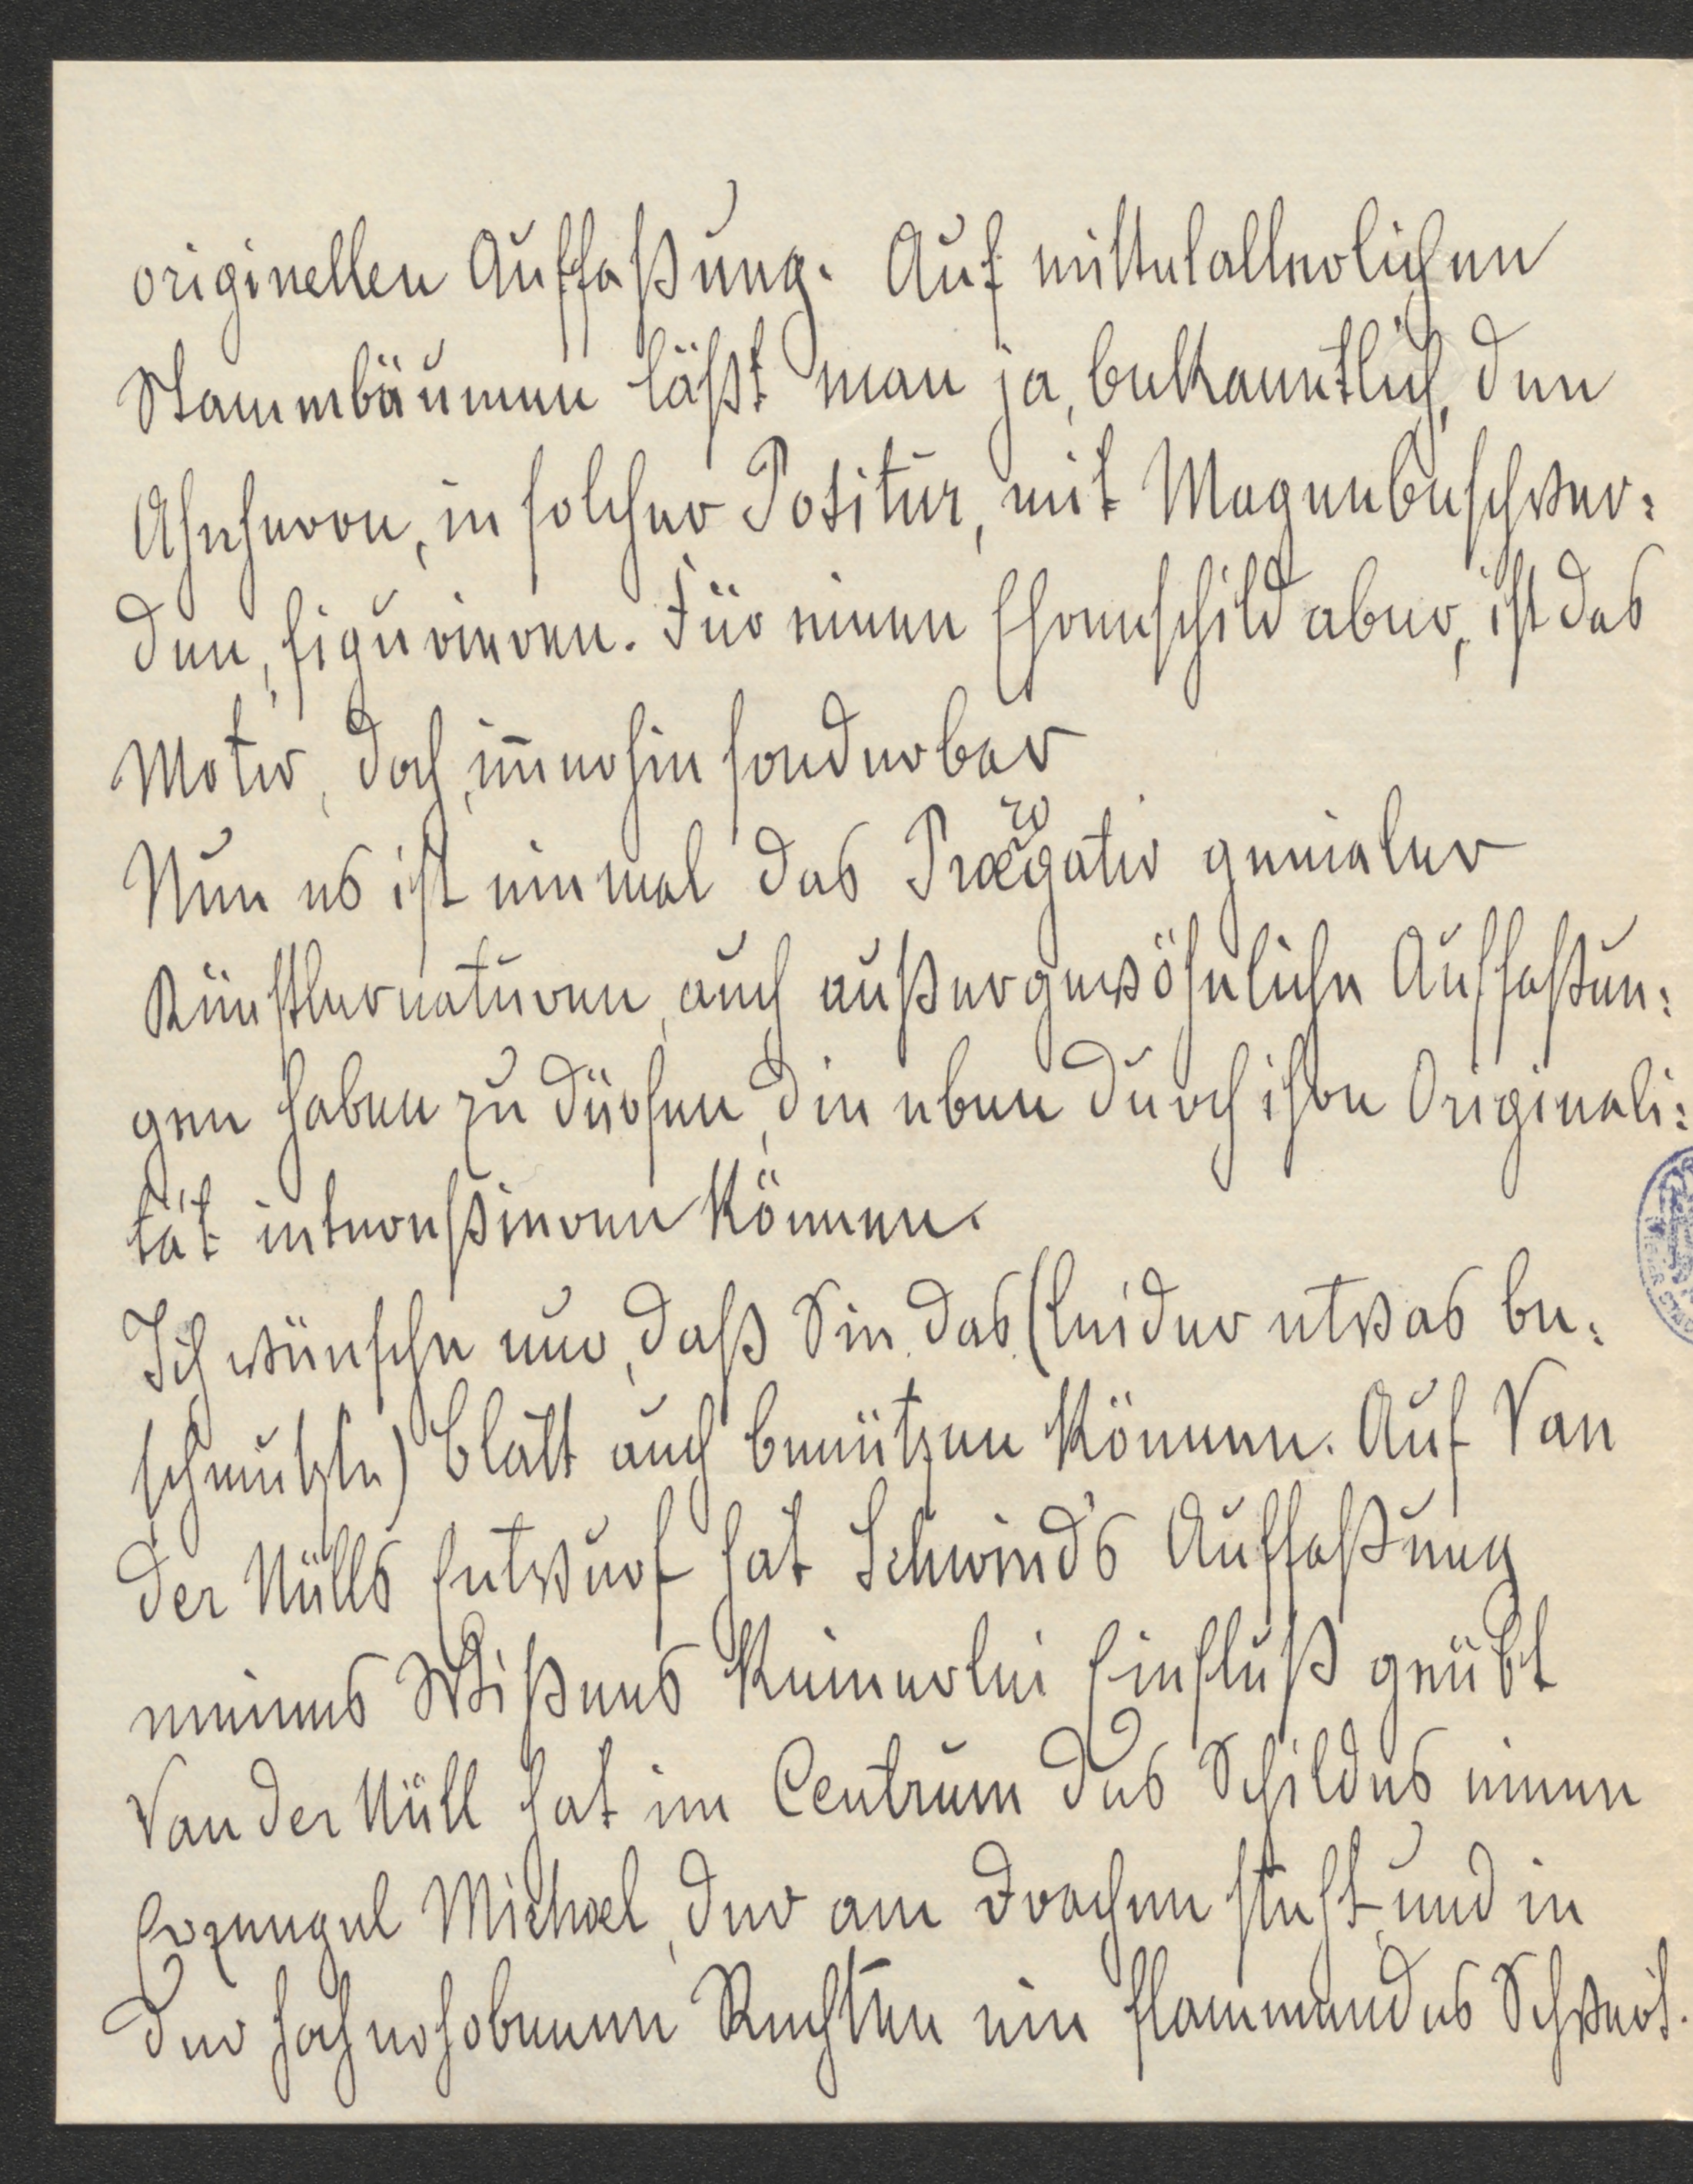 originellen Auffaßung. Auf mittelalterlichen
Stammbäumen läßt man ja, bekanntlich, den
Ahnherrn, in solcher Positur, mit Magenbeschwer:
den, figurieren. Für einen Ehrenschild aber, ist das
Motiv, doch, im̄erhin sonderbar
Nun es ist einmal das Prærogativ genialer
Künstlernaturen, auch außergewöhnliche Auffaßun:
gen haben zu dürfen, die eben durch ihre Originali:
tät intereßieren können.
Ich wünsche nur, daß Sie das (leider etwas be:
schmutzte) Blatt auch benützen können. Auf Van
der Nülls Entwurf hat Schwind's Auffaßung
meines Wißens keinerlei Einfluß geübt
Van der Nüll hat im Centrum des Schildes einen
Erzengel Michael, der am Drachen steht, und in
der hocherhobenen Rechten ein flammendes Schwert.